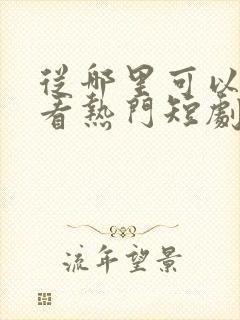 從哪里可以
看熱門短劇
流年望景